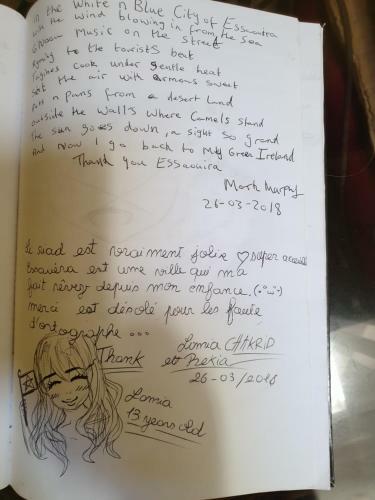 In the White n Blue City of Essaouira
with the wind blowing in from the sea
Gnaoua Music on the street
to the tourists beat
Tagines cook under gentle heat
the air with sweet
n Pans from a desert Land
outside the Walls where Camels stand
the sun goes down, a sight so grand
And now I go back to My Green Ireland
Thank you Essaouira
Mark Murphy
26-03-2018
Le riad est vraiment jolie ♡ super accueil
Essauira est une ville qui m'a
fait rêver depuis mon enfance. (•°ω°•)
merci est désolé pour les faute
d'ortographe ...
Lamia CHAKRID
Thank et Rekia
26-03/2018
Lamia
13 years old